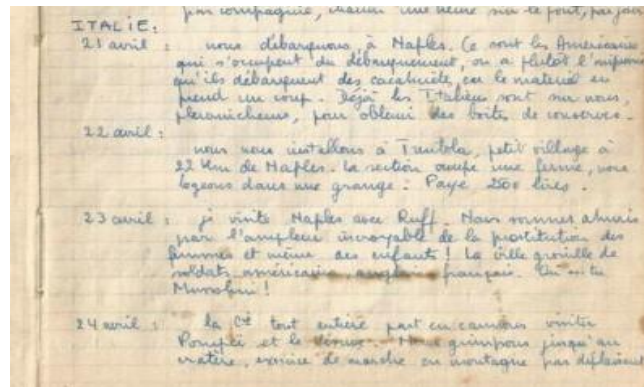 par compagnie, chacun une heure sur le pont, par jour
ITALIE:
21 avril : nous débarquons, à Naples. Ce sont les Américains
qui s'occupent du débarquement, on a plutôt l'impression
qu'ils débarquent des cacahuètes, car le matériel en
prend un coup. Déjà les Italiens sont sur nous,
pleurnicheurs, pour obtenir des boîtes de conserves.
22 avril :
nous nous installons à Trentola, petit village à
22 km de Naples. La section occupe une ferme, nous
logeons dans une grange : Paye 2500 lires.
23 avril : je visite Naples avec Ruff. Nous sommes ahuris
par l'ampleur incroyable de la prostitution des
femmes et même des enfants ! La ville grouille de
soldats américains anglais français. On
Mussolini !
24 avril : la Cie tout entière part en camions visiter
Pompéi et le Vésuve. Nous grimpons jusqu'au
cratère, exercice de marche en montagne pas déplaisant